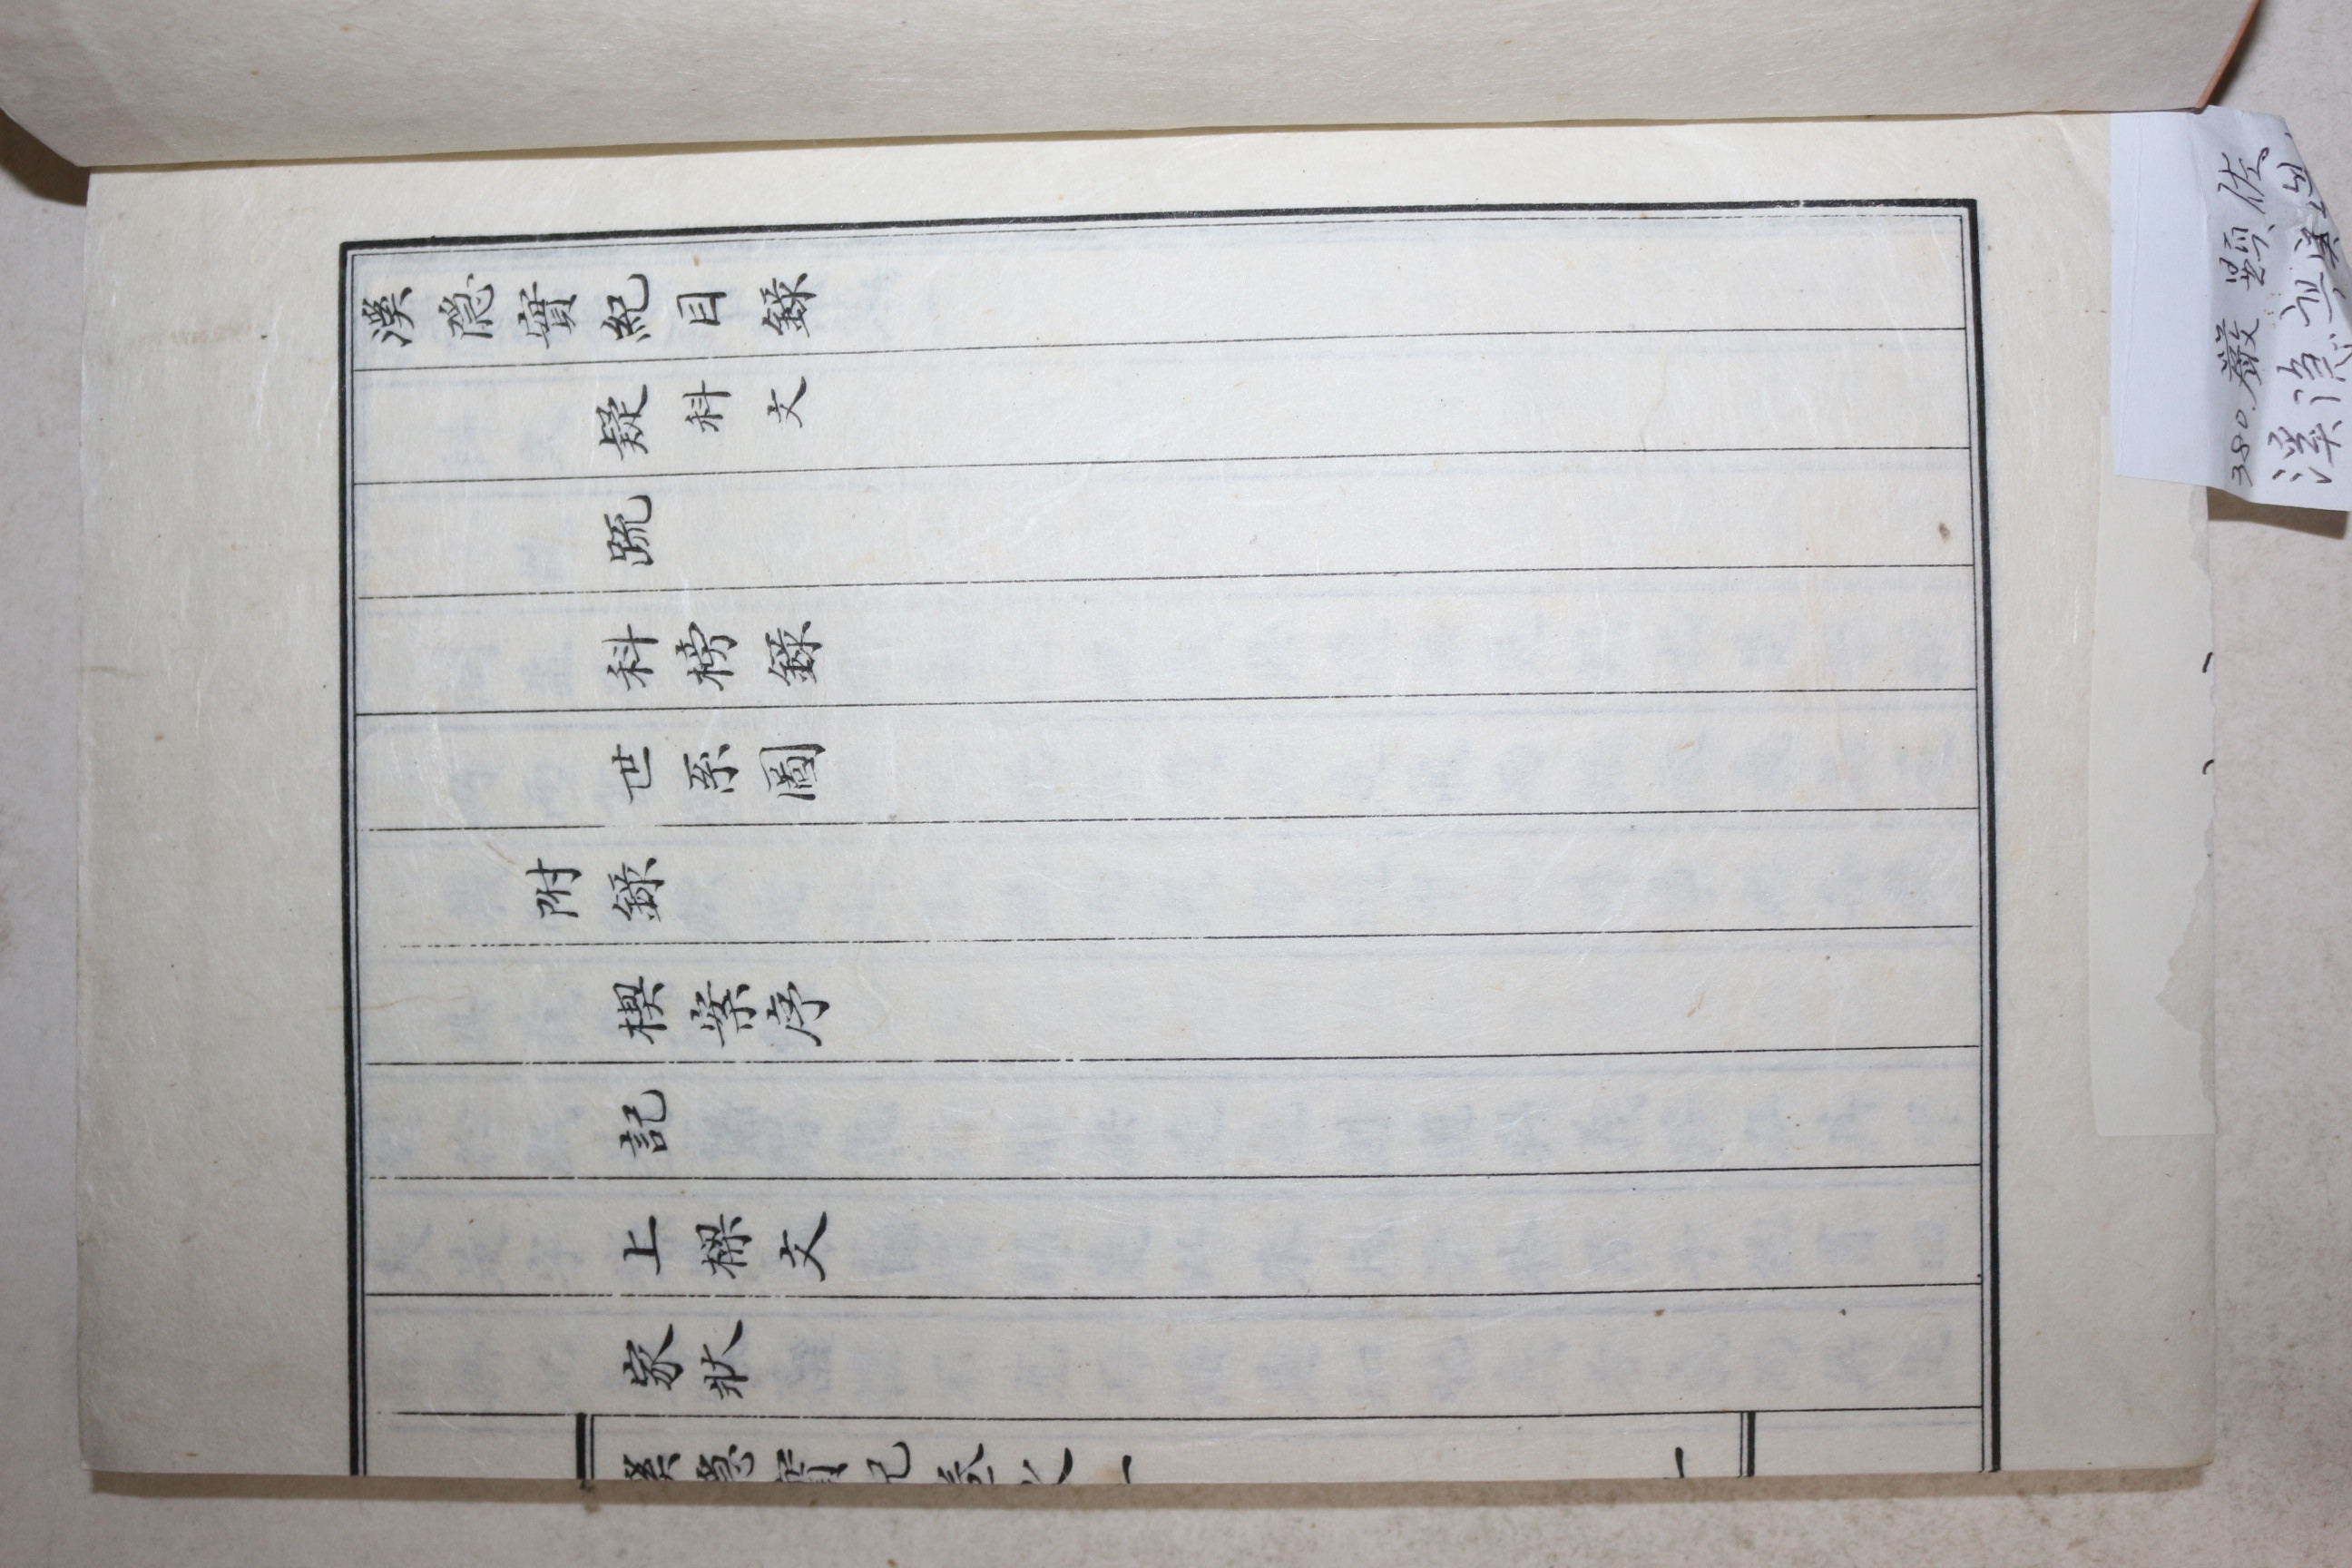 溪隐實紀目錄
疑科文
䟽
科榜錄
世系圖
附錄
楔案序
記
上樑文
家狀
溪隱實紀卷之一
一
380. 嚴顯佐
溪隐